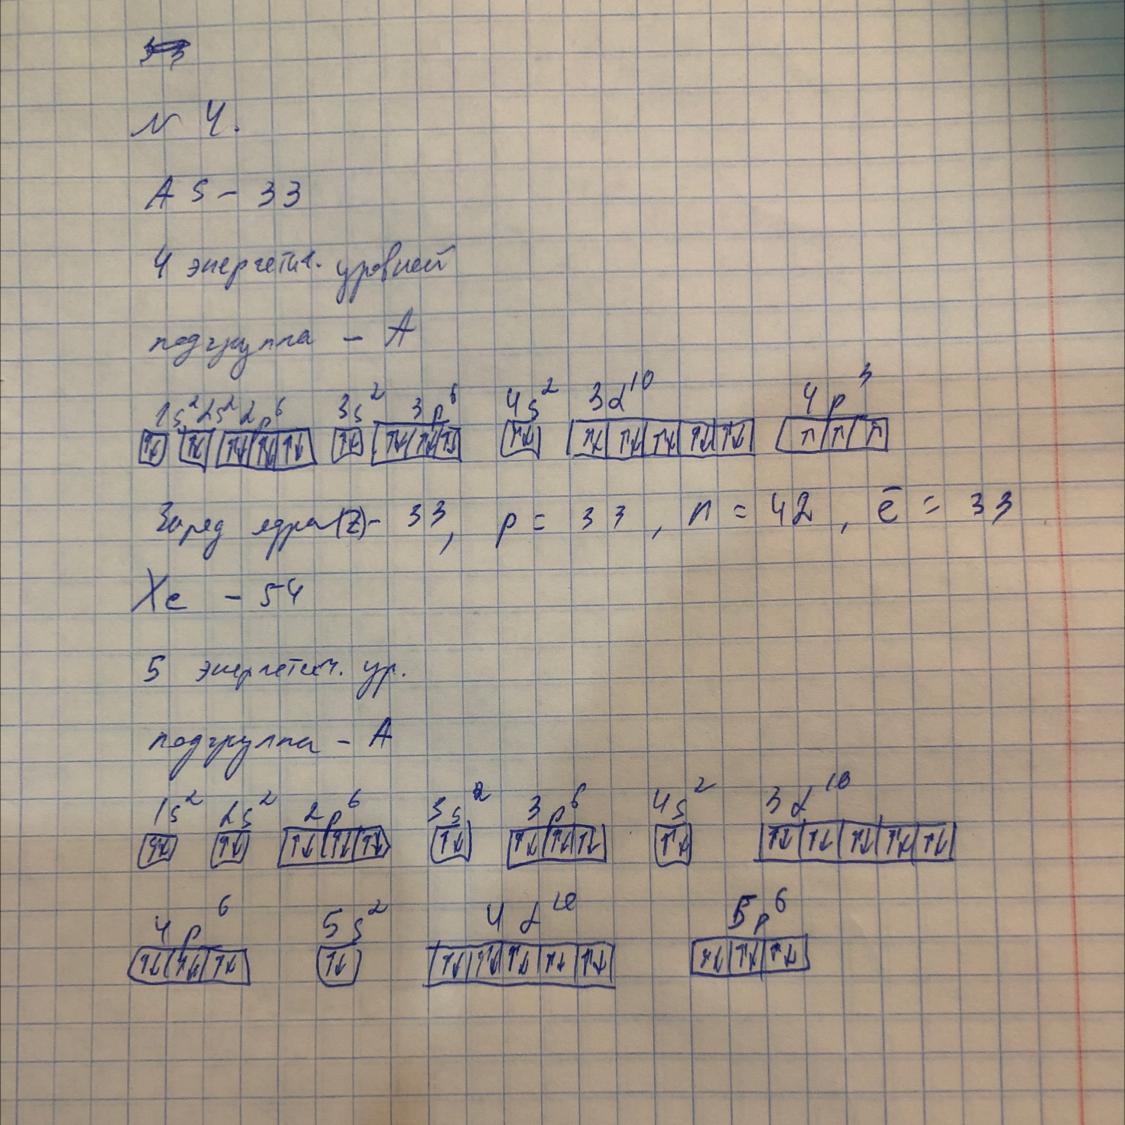 № 4.
As - 33
4 энергетич. уровней
подгруппа - А
1s² 2s² 2p⁶ 3s² 3p⁶ 4s² 3d¹⁰ 4p³
↑↓ ↑↓ ↑↓ ↑↓ ↑↓ ↑↓ ↑↓ ↑↓ ↑↓ ↑↓ ↑↓ ↑↓ ↑↓ ↑↓ ↑↓ ↑ ↑ ↑
Заряд ядра (Z) - 33, p = 33, n = 42, ē = 33
Xe - 54
5 энергетич. ур.
подгруппа - А
1s² 2s² 2p⁶ 3s² 3p⁶ 4s² 3d¹⁰
↑↓ ↑↓ ↑↓ ↑↓ ↑↓ ↑↓ ↑↓ ↑↓ ↑↓ ↑↓ ↑↓ ↑↓ ↑↓ ↑↓ ↑↓
4p⁶ 5s² 4d¹⁰ 5p⁶
↑↓ ↑↓ ↑↓ ↑↓ ↑↓ ↑↓ ↑↓ ↑↓ ↑↓ ↑↓ ↑↓ ↑↓